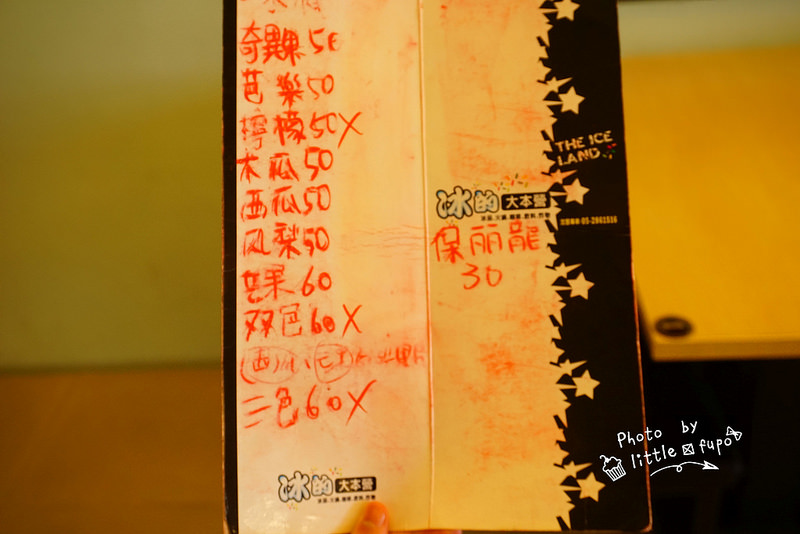 奇異果50
芭樂50
檸檬50X
木瓜50
西瓜50
凤梨50
芒果60
双色60X
三色60X
冰的大本營
THE ICE
LAND
冰的大本營
05-2861516
保丽龍
30
Photo by
little fupo